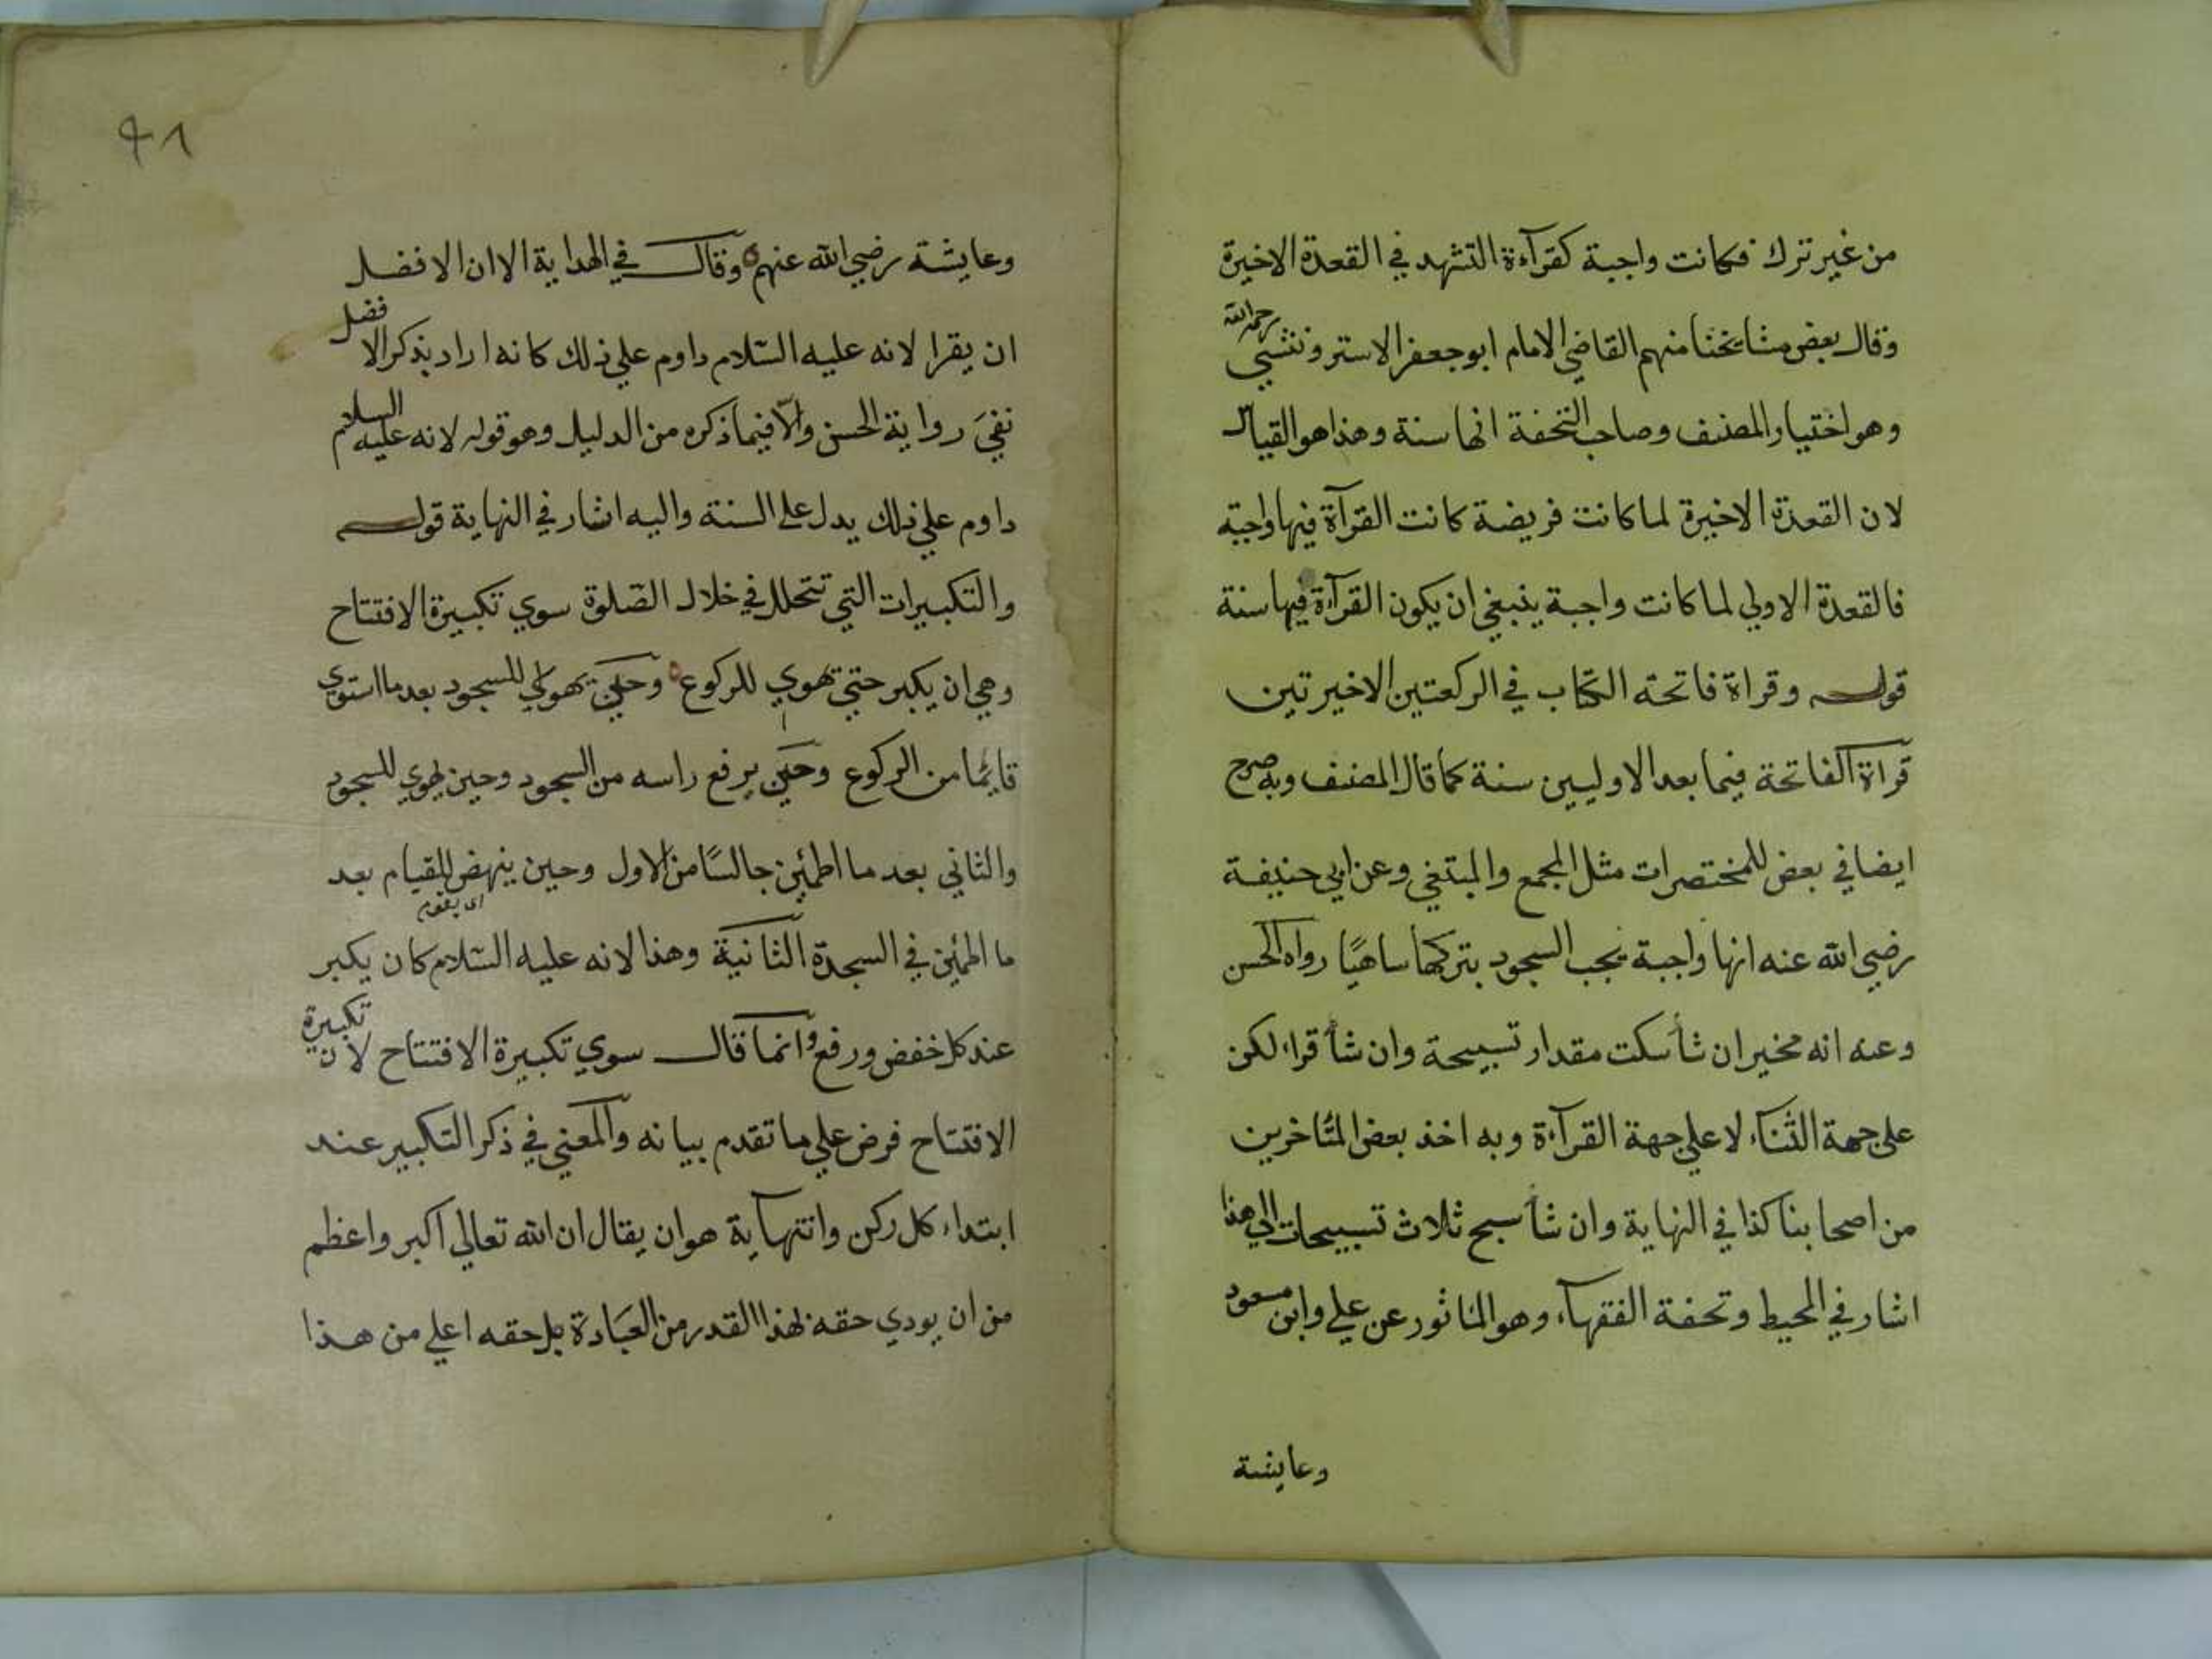 من غير ترك فكانت واجبة كقرآءة التشهد في القعدة الاخيرة
وقال بعض مشايخنا منهم القاضي الامام ابو جعفر الاستروشني رحمه الله
وهو اختيار المصنف وصاحب التحفة انها سنة وهذا هو القياس
لان القعدة الاخيرة لما كانت فريضة كانت القرآة فيها واجبة
فالقعدة الاولي لما كانت واجبة ينبغي ان يكون القرآءة فيها سنة
قوله وقراة فاتحة الكتاب في الركعتين الاخيرتين
قراة الفاتحة فيما بعد الاوليين سنة كما قال المصنف وبه صرح
ايضا في بعض المختصرات مثل المجمع والمبتغي وعن ابي حنيفة
رضي الله عنه انها واجبة يجب السجود بتركها ساهيًا رواه الحسن
وعنه انه مخير ان شأ سكت مقدار تسبيحة وان شأ قراء لكن
علي جهة الثنآء لا علي جهة القرآءة وبه اخذ بعض المتاخرين
من اصحابنا كذا في النهاية وان شأ سبح ثلاث تسبيحات الي هذا
اشار في المحيط وتحفة الفقهآء وهو الماثور عن علي وابن مسعود
وعايشة
٩٨
وعايشة رضي الله عنهم وقال في الهداية الا ان الافضل
ان يقرا لانه عليه السّلام داوم علي ذلك كانه اراد بذكر الافضل
نفيَ رواية الحسن والّا فيما ذكره من الدليل وهو قوله لانه عليه السلام
داوم علي ذلك يدل علي السنة واليه اشار في النهاية قوله
والتكبيرات التي تتخلل في خلال الصّلوة سوي تكبيرة الافتتاح
وهي ان يكبر حتي تهوي للركوع وحين يهوي للسجود بعد ما استوي
قايمًا من الركوع وحين يرفع راسه من السجود وحين يهوي للسجود
والثاني بعد ما اطمئن جالسًا من الاول وحين ينهض للقيام بعد
اى يقوم
ما اطمئن في السجدة الثانية وهذا لانه عليه السّلام كان يكبر
عند كل خفض ورفع وانما قال سوي تكبيرة الافتتاح لان تكبيرة
الافتتاح فرض علي ما تقدم بيانه والمعني في ذكر التكبير عند
ابتداء كل ركن وانتهاية هو ان يقال ان الله تعالي اكبر واعظم
من ان يودي حقه بهذا القدر من العبادة بل حقه اعلي من هذا